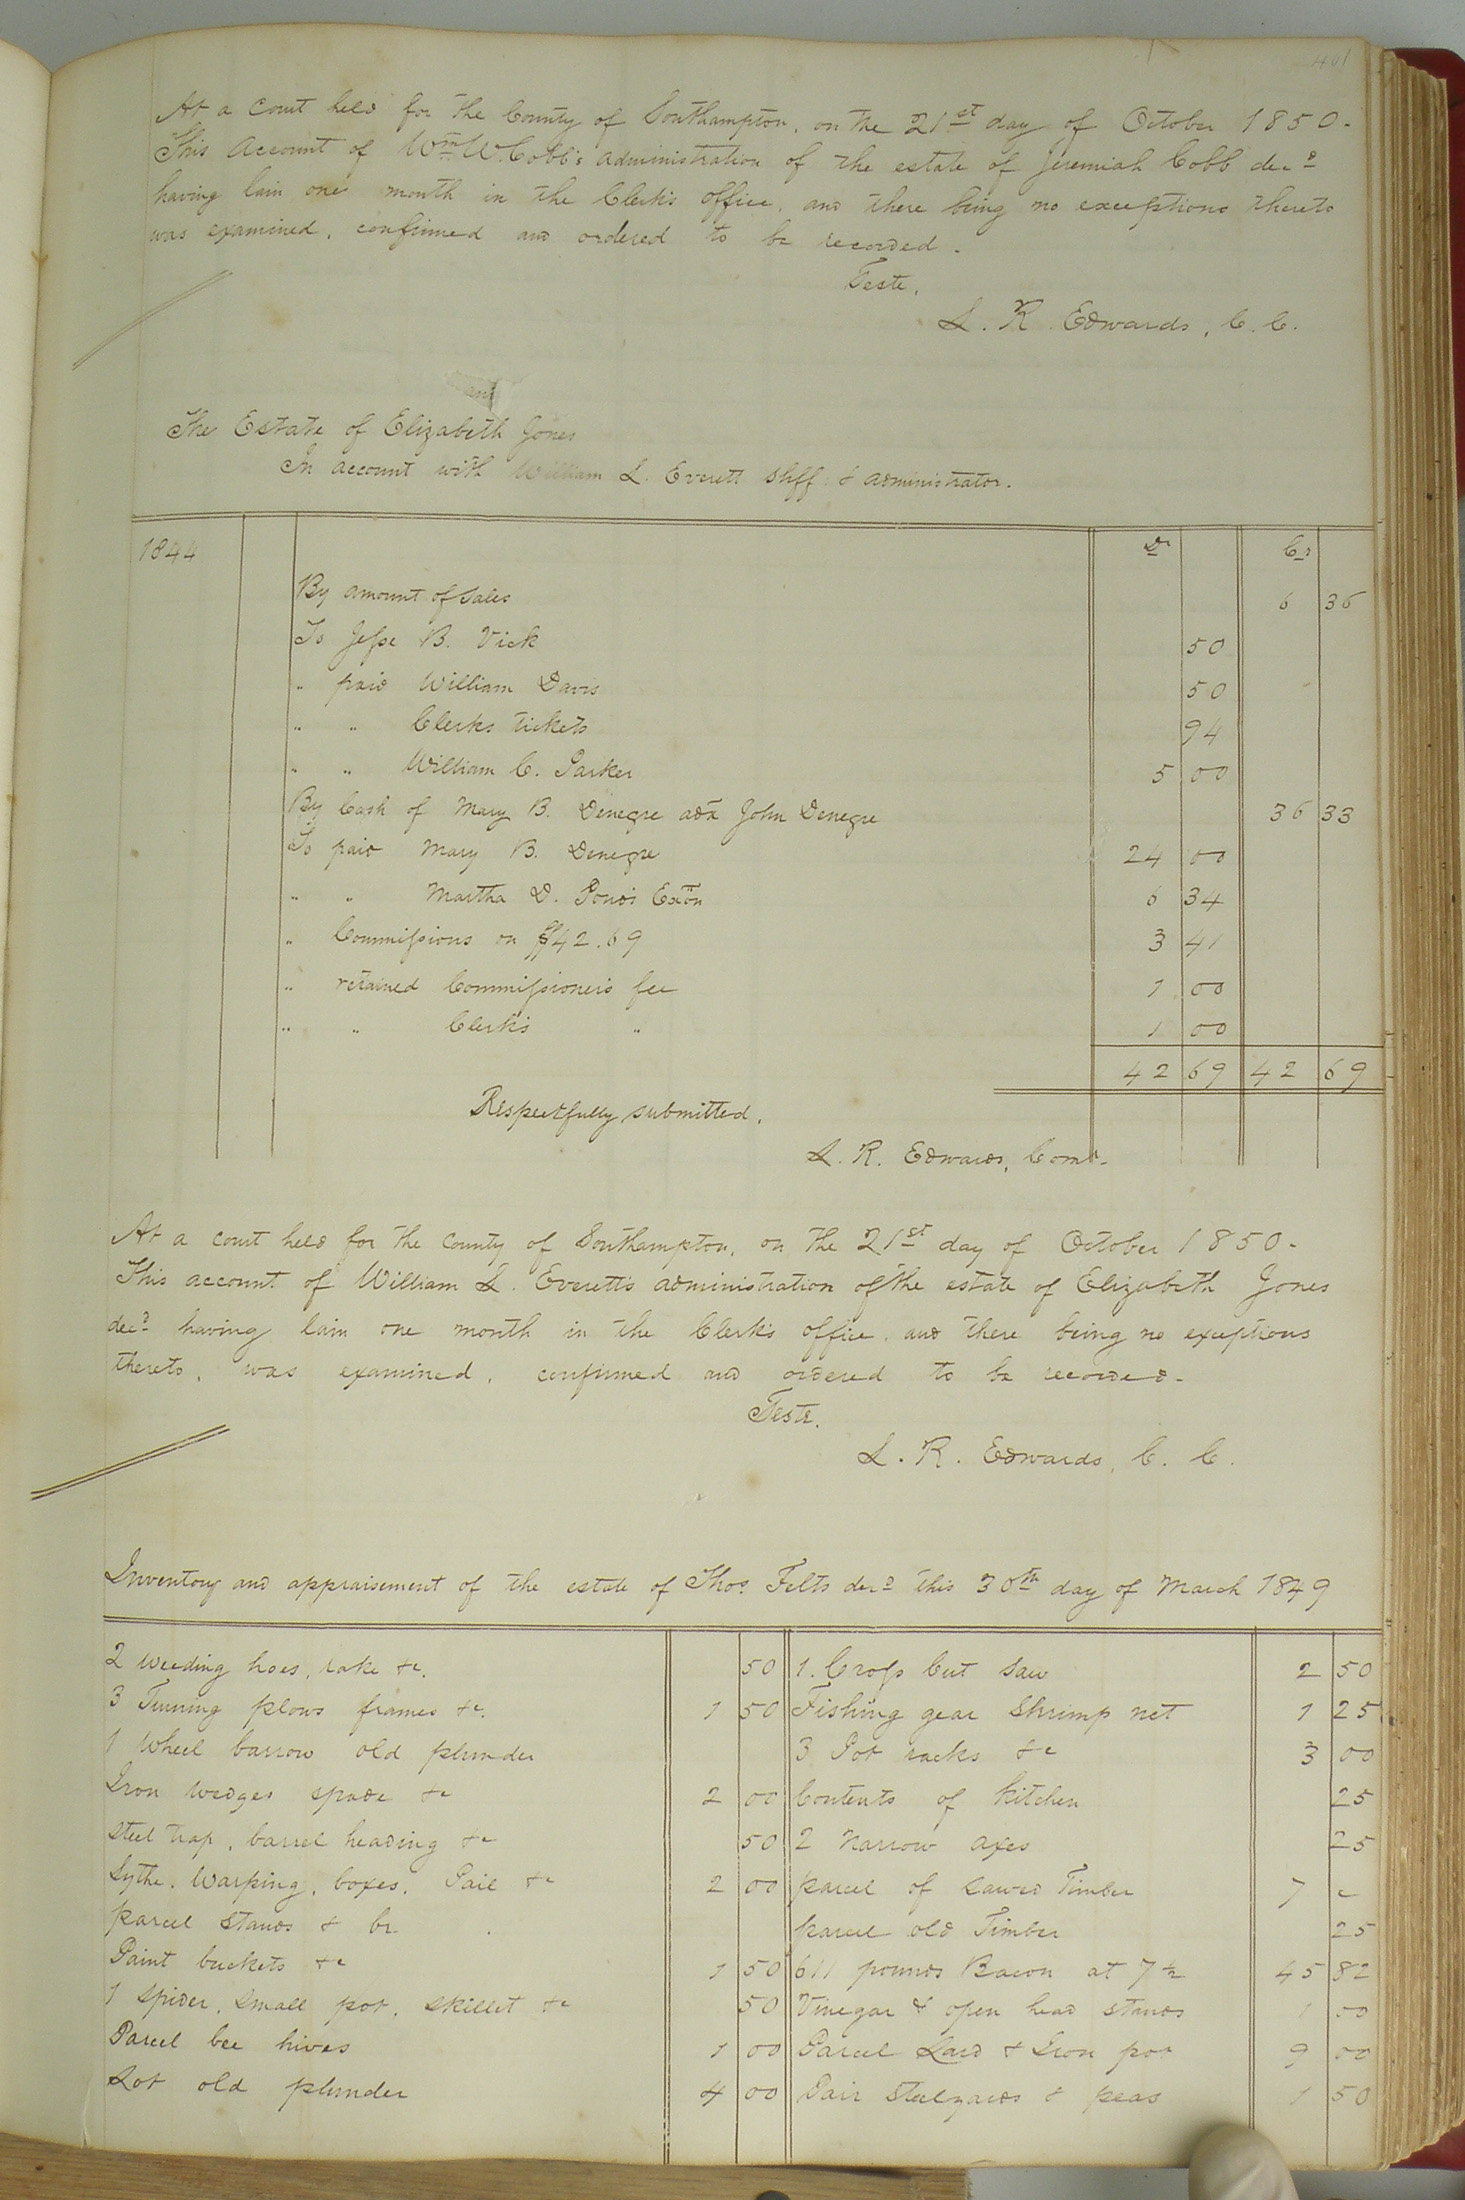 401
At a Court held for the County of Southampton, on the 21st day of October 1850.
This Account of Wm W. Cobb's administration of the estate of Jeremiah Cobb decd
having lain one month in the Clerk's office, and there being no exceptions thereto
was examined, confirmed and ordered to be recorded.
Teste,
L. R. Edwards, C. C.
The Estate of Elizabeth Jones
In account with William L. Everett Shff & administrator.
1844 Dr Cr
By amount of Sales 6 36
To Jesse B. Vick 50
" paid William Davis 50
" " Clerks tickets 94
" " William C. Parker 5 00
By Cash of Mary B. Denegre adx John Denegre 36 33
To paid Mary B. Denegre 24 00
" " Martha D. Pond's Exon 6 34
" Commissions on $42.69 3 41
" retained Commissioner's fee 1 00
" " Clerk's " 1 00
42 69 42 69
Respectfully submitted.
L. R. Edwards, Comr.
At a court held for the County of Southampton, on the 21st day of October 1850.
This account of William L. Everett's administration of the estate of Elizabeth Jones
decd having lain one month in the Clerk's office, and there being no exceptions
thereto, was examined, confirmed and ordered to be recorded.
Teste.
L. R. Edwards, C. C.
Inventory and appraisement of the estate of Thos. Felts decd this 30th day of March 1849
2 Weeding hoes, rake &c. 50 1. Cross Cut Saw 2 50
3 Turning plows frames &c. 1 50 Fishing gear Shrimp net 1 25
1 Wheel barrow old plunder 3 Pot racks &c 3 00
Iron wedges spade &c 2 00 Contents of kitchen 25
Steel trap, barrel heading &c 50 2 narrow axes 25
Sythe, Warping, boxes, Pail &c 2 00 parcel of sawed Timber 7 "
parcel Stands & br. parcel old Timber 25
Paint buckets &c 1 50 611 pounds Bacon at 7½ 45 82
1 Spider, small pot, skillet &c 50 Vinegar & open head stands 1 00
Parcel bee hives 1 00 Parcel Lard & Iron pot 9 00
Lot old plunder 4 00 Pair Steelyards & peas 1 50